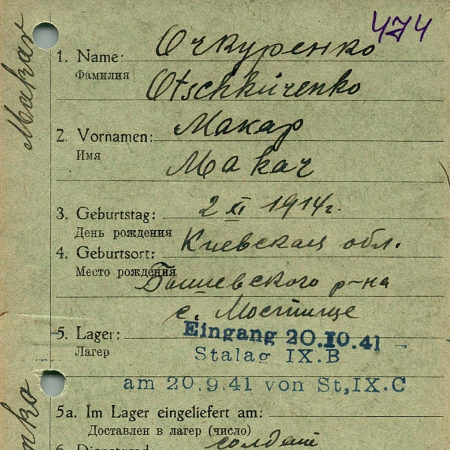 474
Makar
1. Name: Очкуренко
Фамилия
Otschkurenko
2. Vornamen: Макар
Имя
Makar
3. Geburtstag: 2 XI 1914г.
День рождения
4. Geburtsort: Киевская обл.
Место рождения
Бышевского р-на
с. Мостище
5. Lager: Eingang 20.10.41
Лагерь
Stalag IX.B
am 20.9.41 von St,IX.C
5a. Im Lager eingeliefert am:
Доставлен в лагерь (число)
солдат
6. Dienstgrad
nko